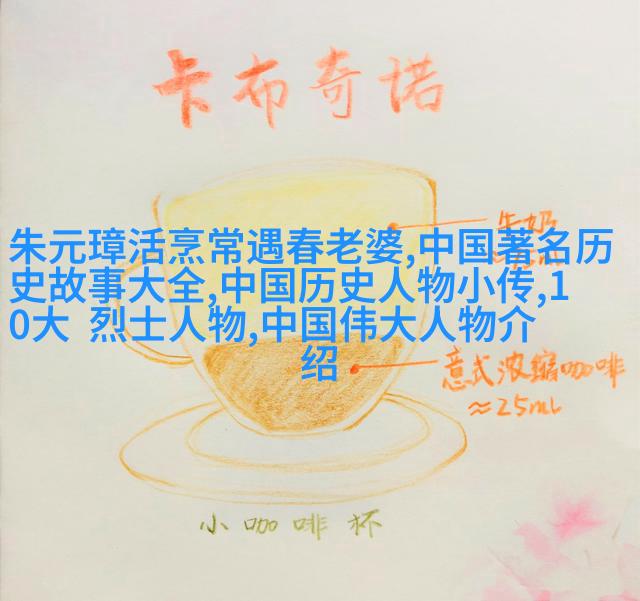 卡布奇诺
朱元璋活烹常遇春老婆,中国著名历
史故事大全,中国历史人物小传,1
0大 烈士人物,中国伟大人物介
绍
牛奶
意式浓缩咖啡
≈25ml
小咖啡杯